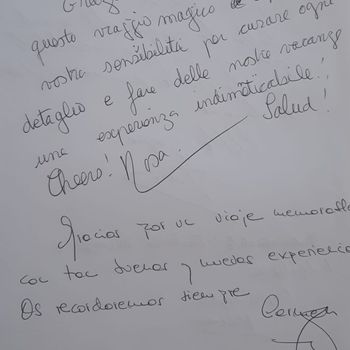 Graz
questo viaggio magico e
vostra sensibilità per curare ogni
detaglio e fare delle nostre vacanze
una experienza indimeticabile!
Cheers! Nosa. Salud!
Gracias por un viaje memorable
con tan buenas y nuevas experiencias
Os recordaremos siempre
Carmen